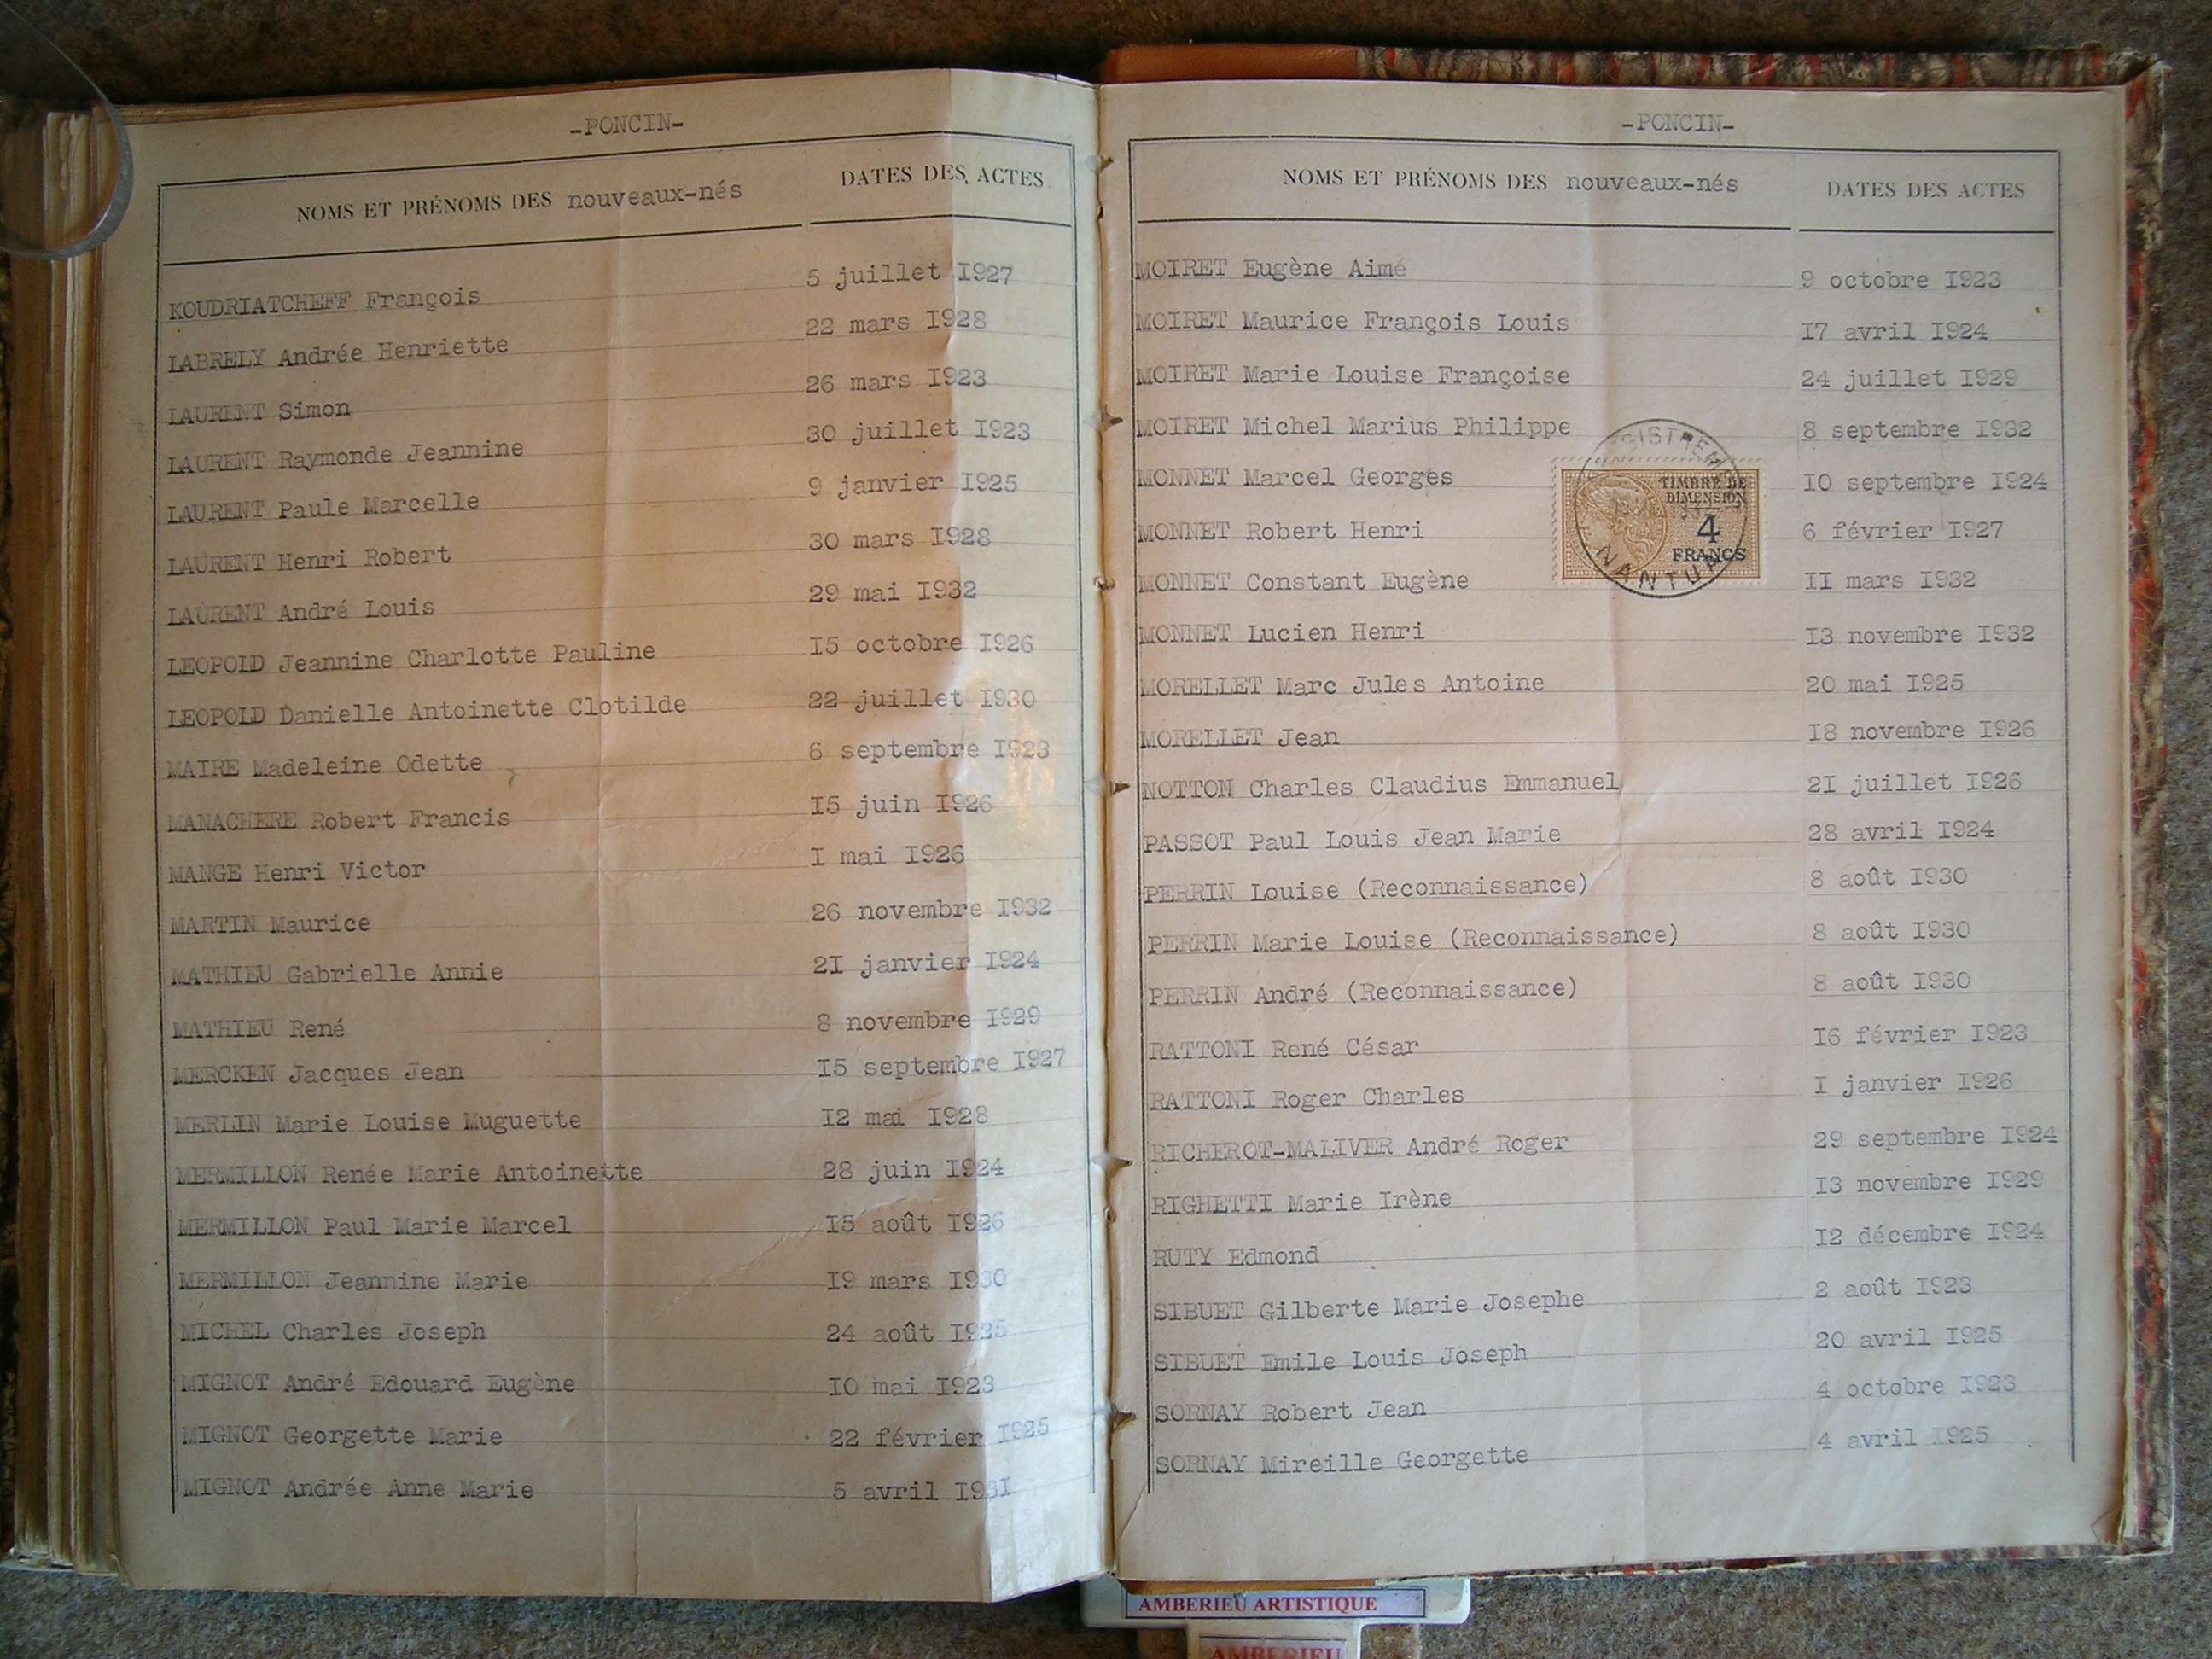 -PONCIN-
NOMS ET PRÉNOMS DES nouveaux-nés DATES DES ACTES
KOUDRIATCHEFF François 5 juillet I927
LABRELY Andrée Henriette 22 mars I928
LAURENT Simon 26 mars I923
LAURENT Raymonde Jeannine 30 juillet I923
LAURENT Paule Marcelle 9 janvier I925
LAURENT Henri Robert 30 mars I928
LAURENT André Louis 29 mai I932
LEOPOLD Jeannine Charlotte Pauline I5 octobre I926
LEOPOLD Danielle Antoinette Clotilde 22 juillet I930
MAIRE Madeleine Odette 6 septembre I923
MANACHERE Robert Francis I5 juin I926
MANGE Henri Victor I mai I926
MARTIN Maurice 26 novembre I932
MATHIEU Gabrielle Annie 2I janvier I924
MATHIEU René 8 novembre I929
MERCKEN Jacques Jean I5 septembre I927
MERLIN Marie Louise Muguette I2 mai I928
MERMILLON Renée Marie Antoinette 28 juin I924
MERMILLON Paul Marie Marcel I5 août I926
MERMILLON Jeannine Marie I9 mars I930
MICHEL Charles Joseph 24 août
MIGNOT André Edouard Eugène I0 mai I923
MIGNOT Georgette Marie 22 février I925
MIGNOT Andrée Anne Marie 5 avril I93I
-PONCIN-
NOMS ET PRÉNOMS DES nouveaux-nés DATES DES ACTES
MOIRET Eugène Aimé 9 octobre I923
MOIRET Maurice François Louis I7 avril I924
MOIRET Marie Louise Françoise 24 juillet I929
MOIRET Michel Marius Philippe 8 septembre I932
MONNET Marcel Georges I0 septembre I924
MONNET Robert Henri 6 février I927
MONNET Constant Eugène II mars I932
MONNET Lucien Henri I3 novembre I932
MORELLET Marc Jules Antoine 20 mai I925
MORELLET Jean I8 novembre I926
NOTTON Charles Claudius Emmanuel 2I juillet I926
PASSOT Paul Louis Jean Marie 28 avril I924
PERRIN Louise (Reconnaissance) 8 août I930
PERRIN Marie Louise (Reconnaissance) 8 août I930
PERRIN André (Reconnaissance) 8 août I930
RATTONI René César I6 février I923
RATTONI Roger Charles I janvier I926
RICHEROT-MALIVER André Roger 29 septembre I924
RIGHETTI Marie Irène I3 novembre I929
RUTY Edmond I2 décembre I924
SIBUET Gilberte Marie Josephe 2 août I923
SIBUET Emile Louis Joseph 20 avril I925
SORNAY Robert Jean 4 octobre I923
SORNAY Mireille Georgette 4 avril I925
TIMBRE DE
DIMENSION
4
FRANCS
NANTUA
AMBERIEU ARTISTIQUE
AMBERIEU